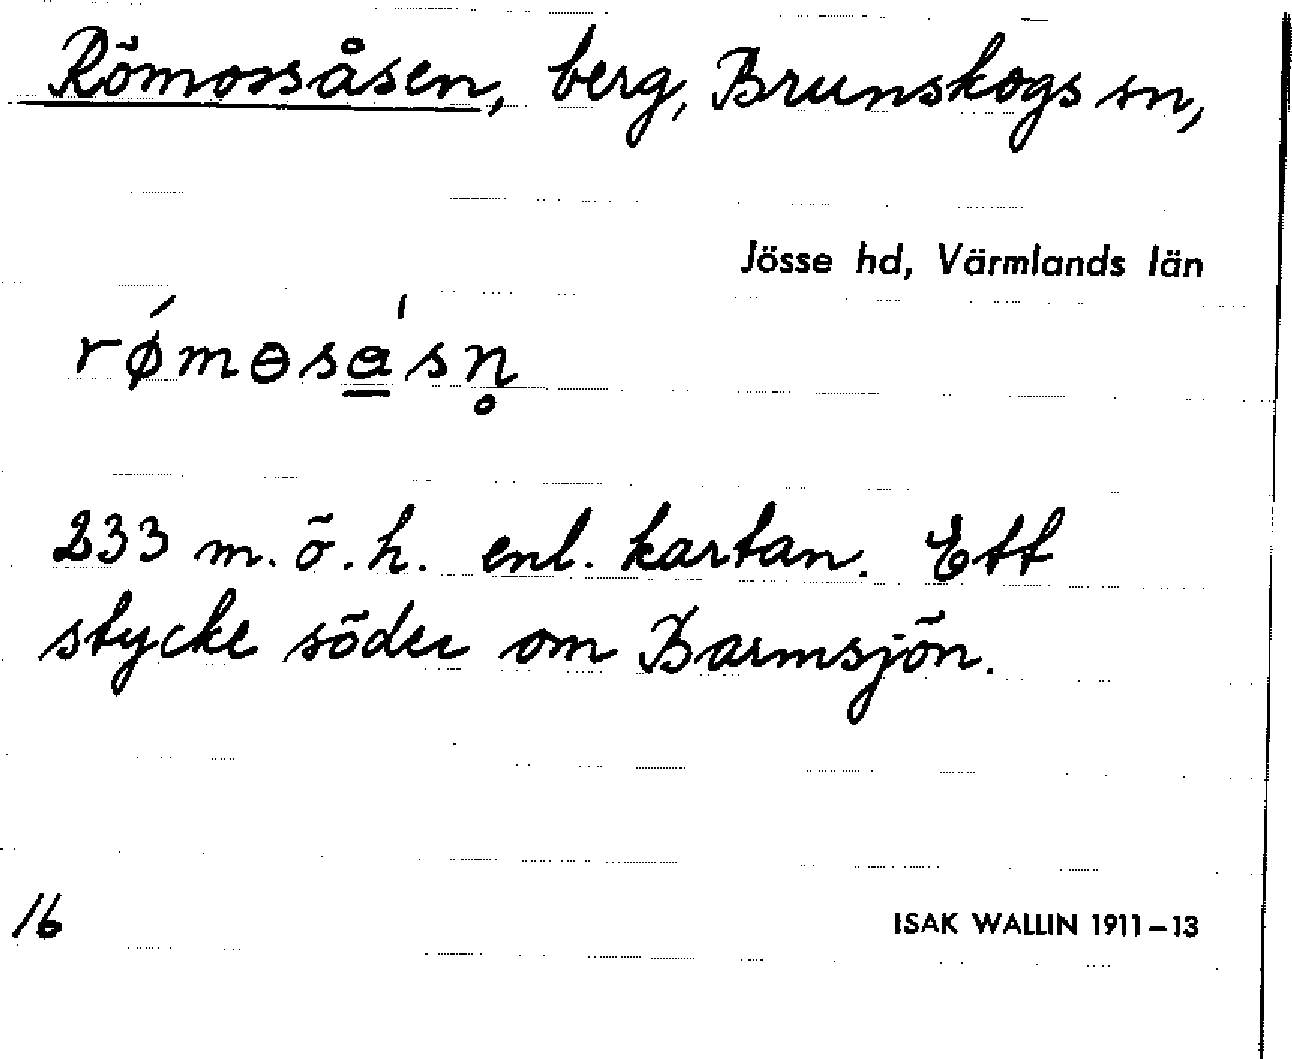 Römossåsen, berg, Brunskogs sn,
Jösse hd, Värmlands län
rǿmɵsa̳ˈsn̥
233 m. ö. h. enl. kartan. Ett
stycke söder om Barmsjön.
16
ISAK WALLIN 1911–13